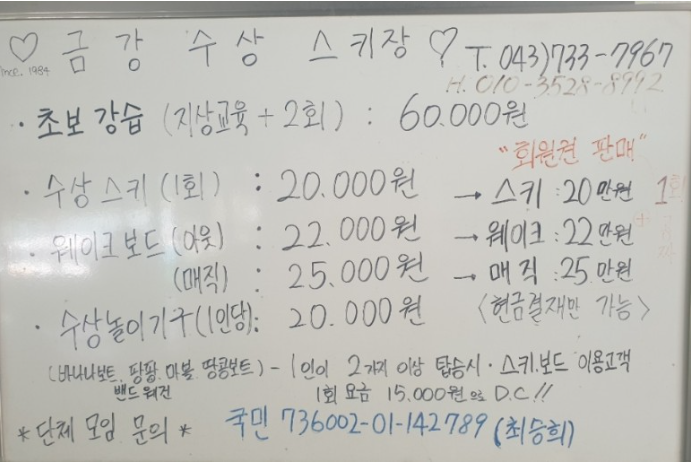 ♡ 금강 수상 스키장 ♡ T. 043)733-7967
since. 1984 H. 010-3528-8992
· 초보 강습 (지상교육 + 2회) : 60.000원
"회원권 판매"
· 수상스키 (1회) : 20.000원 → 스키 : 20만원 1회
· 웨이크보드 (아웃) : 22.000원 → 웨이크 : 22만원
(매직) : 25.000원 → 매직 : 25만원
· 수상놀이기구(1인당): 20.000원 <현금결재만 가능>
(바나나보트. 팡팡. 마블. 땅콩보트) - 1인이 2가지 이상 탑승시 · 스키.보드 이용고객
밴드웨건 1회 요금 15.000원으로 D.C!!
*단체 모임 문의* 국민 736002-01-142789 (최승희)